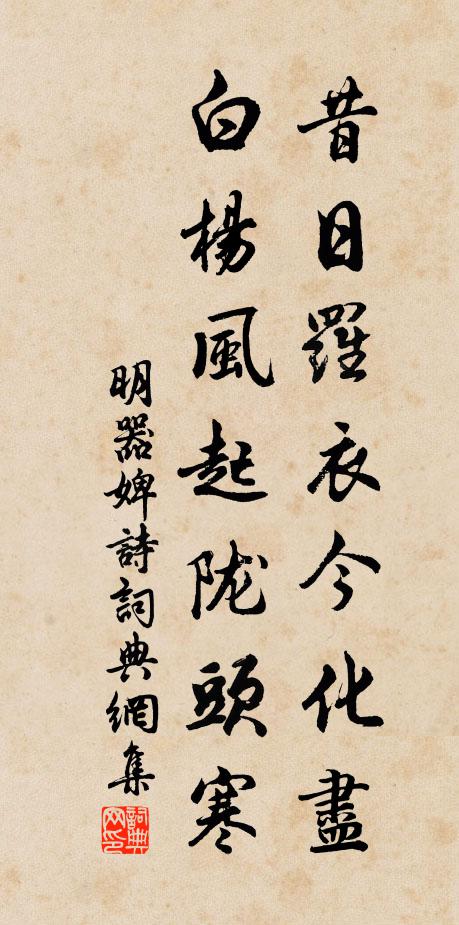 昔日羅衣今化盡
白楊風起陇頭寒
明器婢詩詞典網集
詞典网印